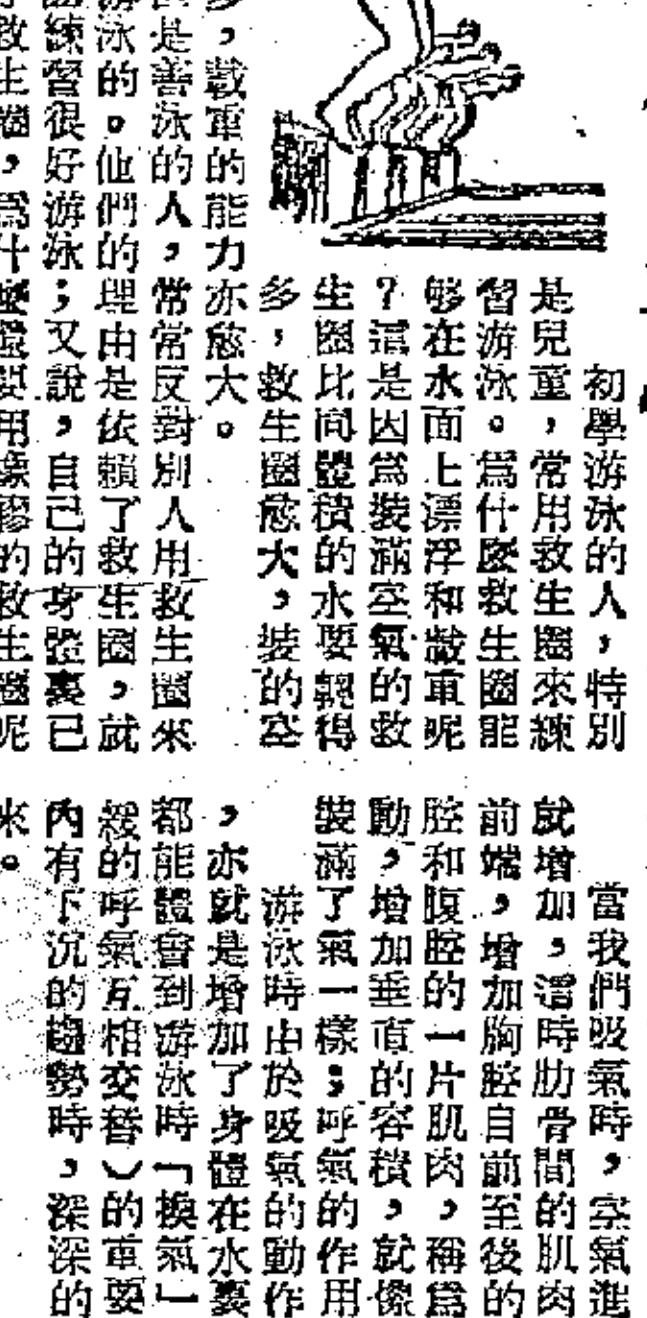 初學游泳的人,特別
是兒童,常用救生圈來練
習游泳。爲什麼救生圈能
够在水面上漂浮和載重呢
?這是因爲裝滿空氣的救
生圈比同體積的水要輕得
多,救生圈愈大,裝的空
多,載重的能力亦愈大。
是善泳的人,常常反對別人用救生圈來
泳的。他們的理由是依賴了救生圈,就
練習很好游泳;又說,自己的身體裏已
救生圈,爲什麼還要用橡膠的救生圈呢
當我們吸氣時,空氣進
就增加,這時肋骨間的肌肉
前端,增加胸腔自前至後的
腔和腹腔的一片肌肉,稱爲
動,增加垂直的容積,就像
裝滿了氣一樣;呼氣的作用
游泳時由於吸氣的動作
,亦就是增加了身體在水裏
都能體會到游泳時「換氣」
緩的呼氣互相交替)的重要
內有下沉的趨勢時,深深的
來。